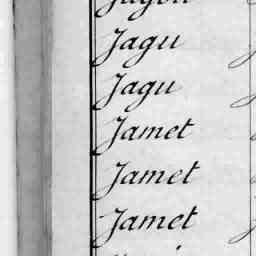 Jagu
Jagu
Jamet
Jamet
Jamet